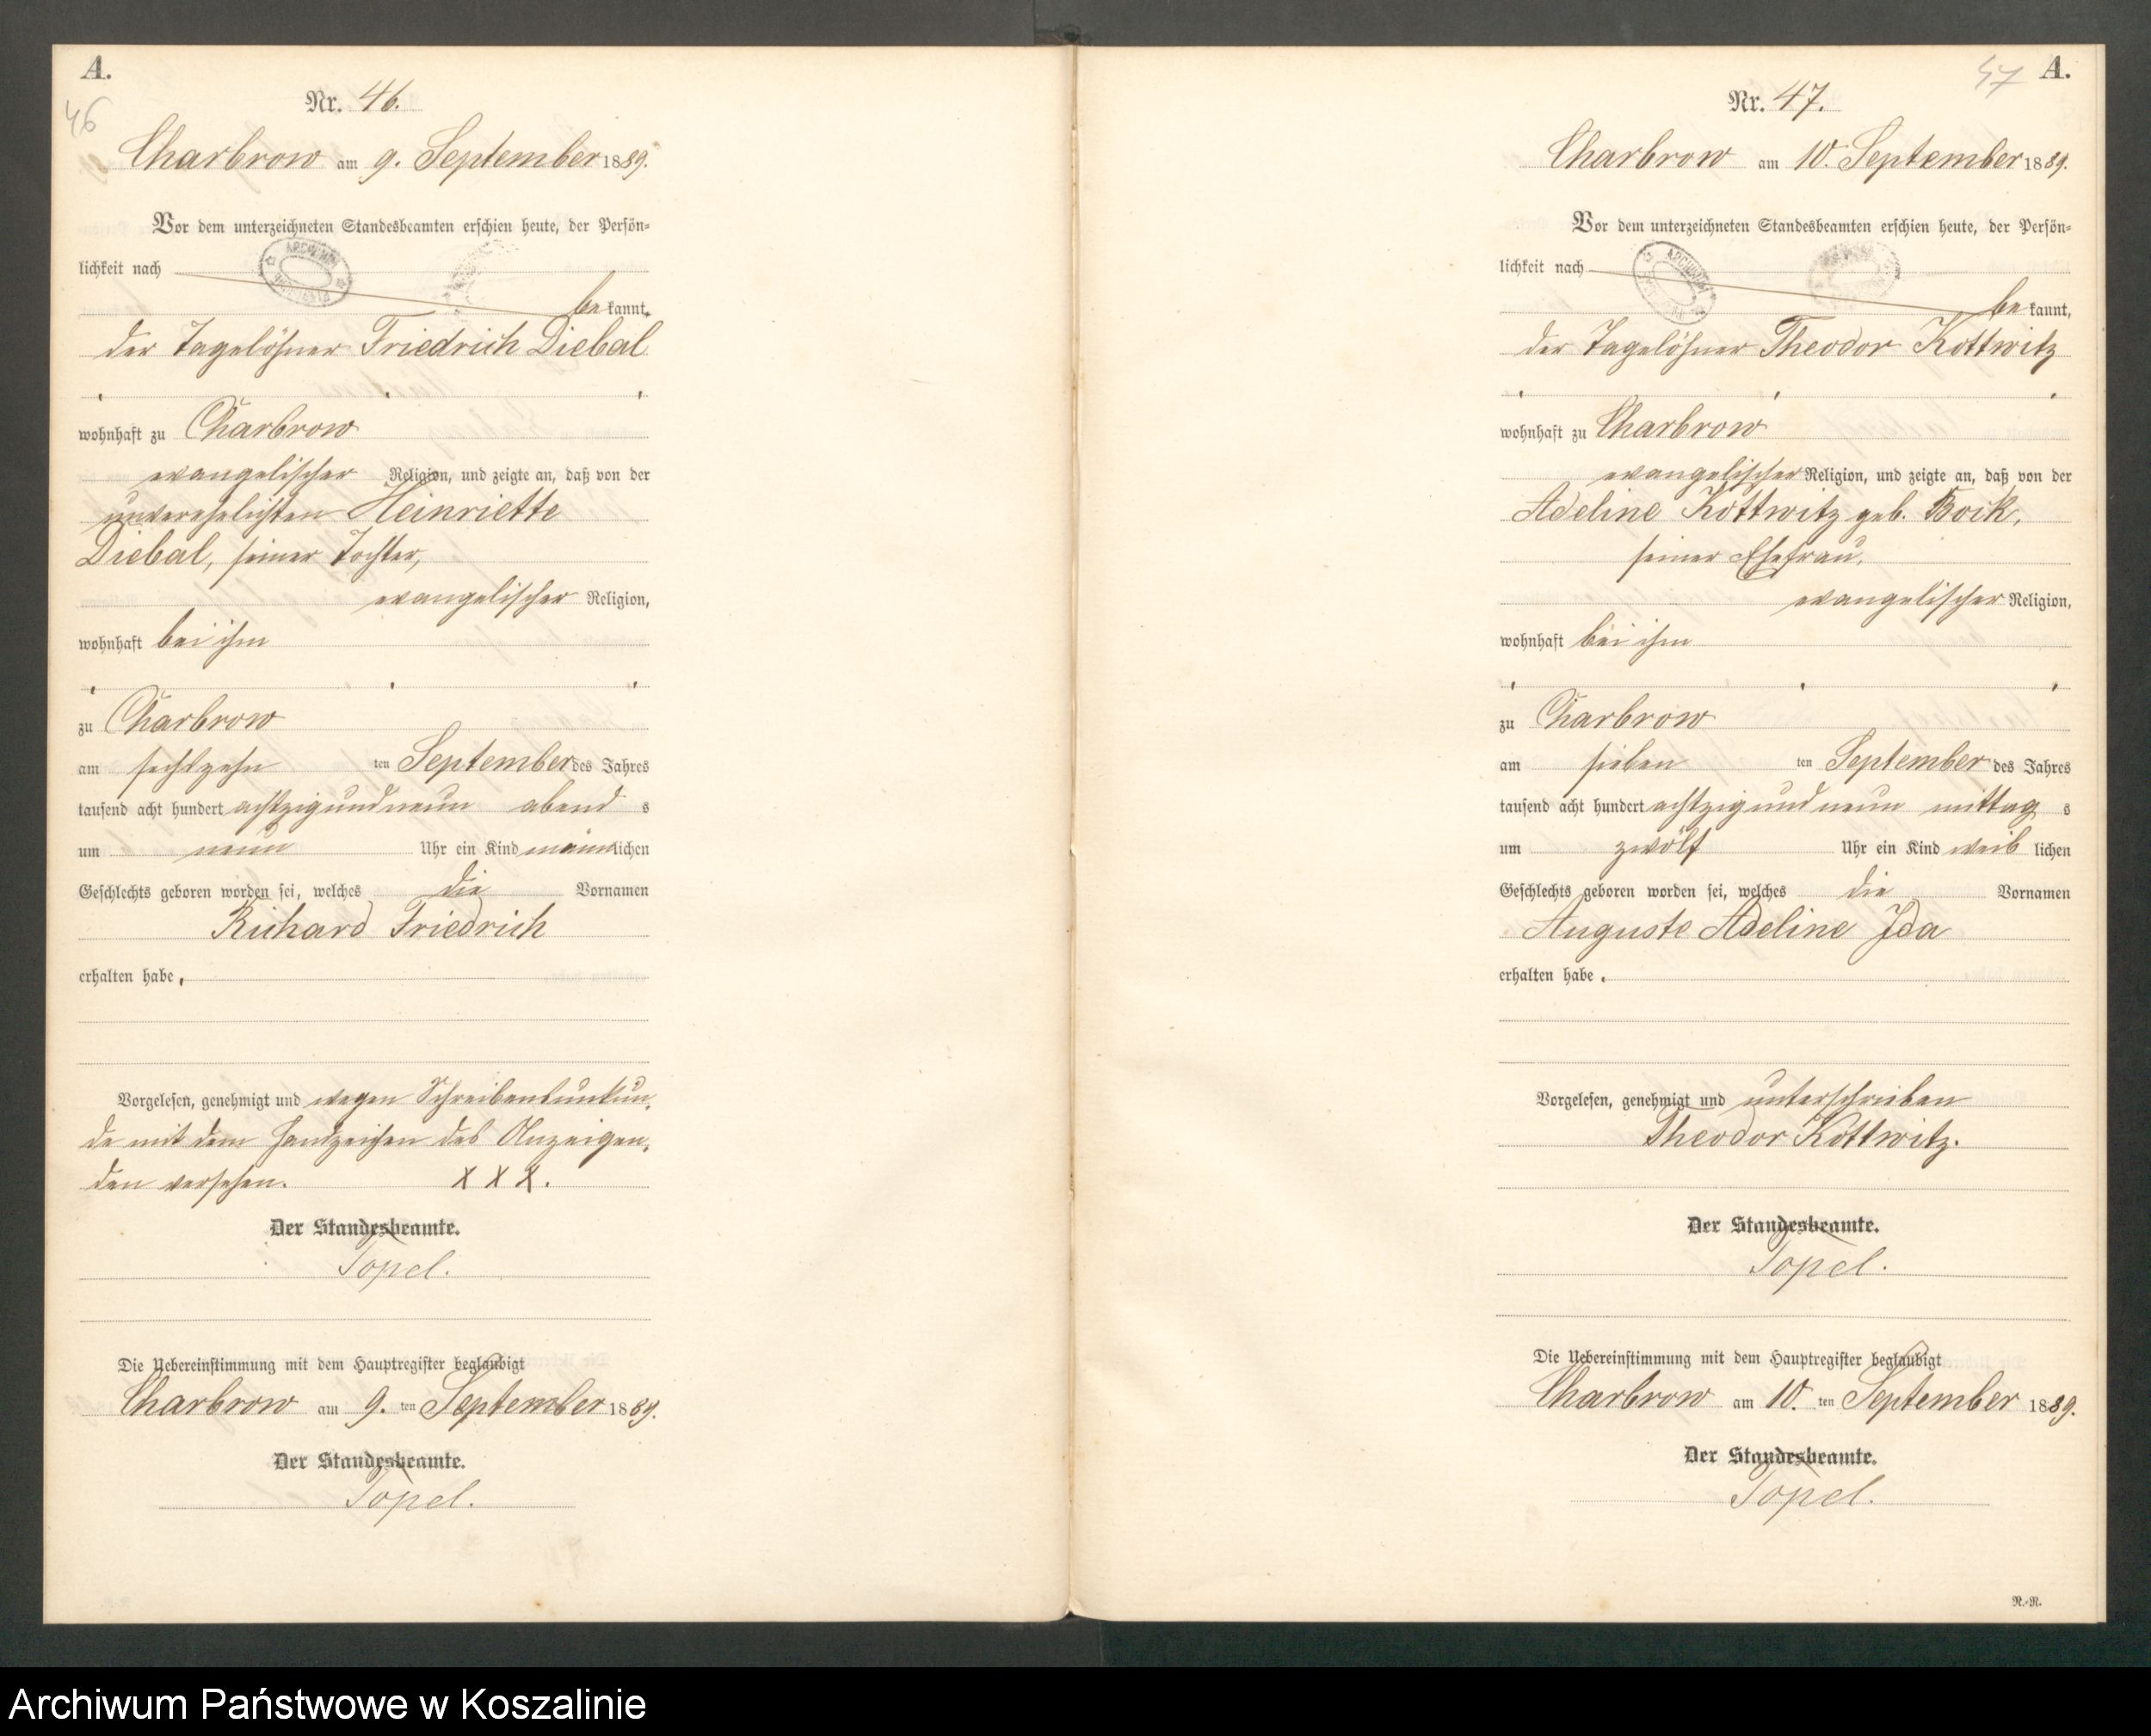 A.
46
Nr. 46.
Charbrow am 9. September 1889.
Vor dem unterzeichneten Standesbeamten erschien heute, der Persön=
lichkeit nach
bekannt,
der Tagelöhner Friedrich Diebal
wohnhaft zu Charbrow
evangelischer Religion, und zeigte an, daß von der
unverehelichten Heinriette
Diebal, seiner Tochter,
evangelischer Religion,
wohnhaft bei ihm
zu Charbrow
am sechszehn ten September des Jahres
tausend acht hundert achtzig und neun abend s
um neun Uhr ein Kind männlichen
Geschlechts geboren worden sei, welches die Vornamen
Richard Friedrich
erhalten habe.
Vorgelesen, genehmigt und wegen Schreibensunkun-
de mit dem Handzeichen des Anzeigen-
den versehen. X X X.
Der Standesbeamte.
Topel.
Die Uebereinstimmung mit dem Hauptregister beglaubigt
Charbrow am 9. ten September 1889.
Der Standesbeamte.
Topel.
47 A.
Nr. 47.
Charbrow am 10. September 1889.
Vor dem unterzeichneten Standesbeamten erschien heute, der Persön=
lichkeit nach
bekannt,
der Tagelöhner Theodor Kottwitz
wohnhaft zu Charbrow
evangelischer Religion, und zeigte an, daß von der
Adeline Kottwitz geb. Bock,
seiner Ehefrau,
evangelischer Religion,
wohnhaft bei ihm
zu Charbrow
am sieben ten September des Jahres
tausend acht hundert achtzig und neun mittag s
um zwölf Uhr ein Kind weiblichen
Geschlechts geboren worden sei, welches die Vornamen
Auguste Adeline Ida
erhalten habe.
Vorgelesen, genehmigt und unterschrieben
Theodor Kottwitz.
Der Standesbeamte.
Topel.
Die Uebereinstimmung mit dem Hauptregister beglaubigt
Charbrow am 10. ten September 1889.
Der Standesbeamte.
Topel.
R.-R.
Archiwum Państwowe w Koszalinie